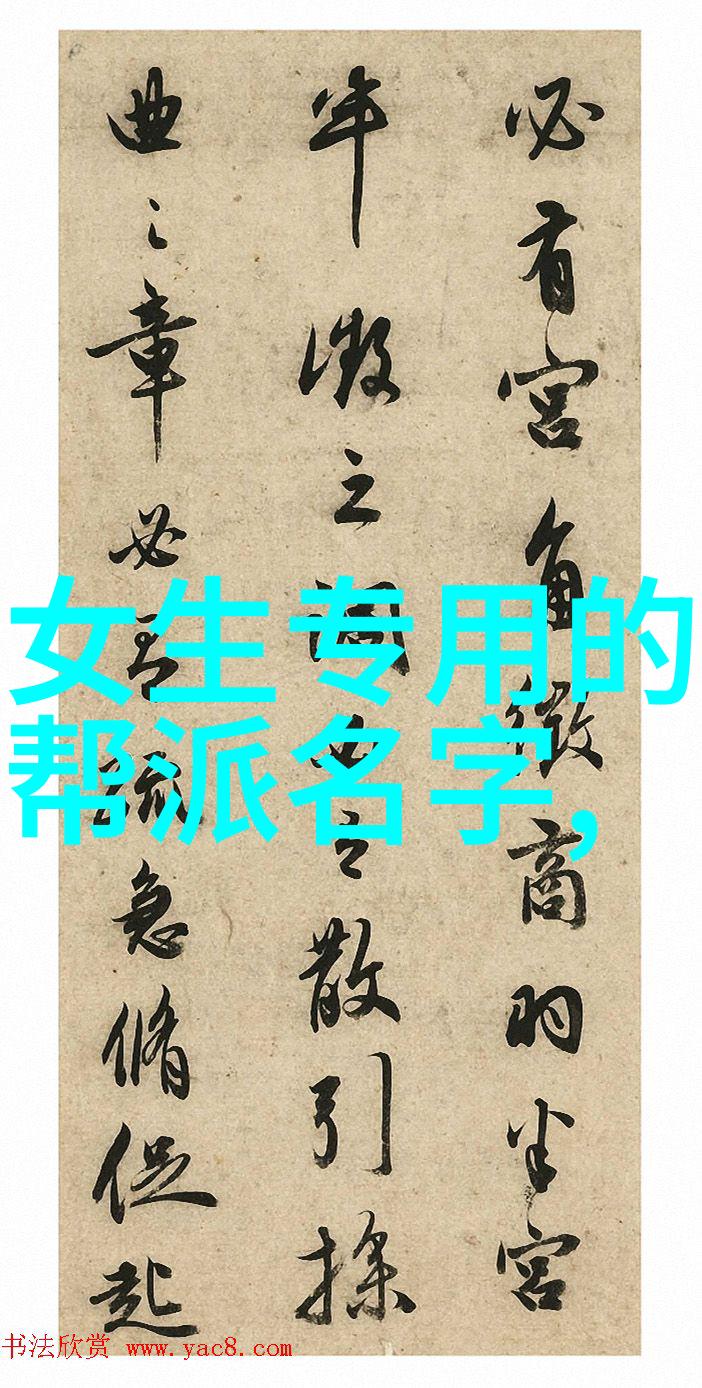 必有宫角徵商羽半宫
半徵之調之散引操
曲之章必有急脩促起
女生专用的
帮派名字,
书法欣赏 www.yac8.com